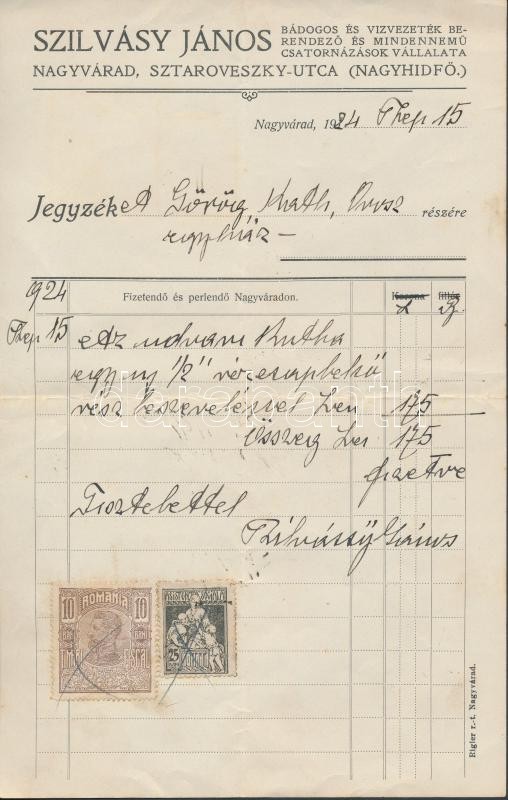 SZILVÁSY JÁNOS
BÁDOGOS ÉS VIZVEZETÉK BE-
RENDEZŐ ÉS MINDENNEMŰ
CSATORNÁZÁSOK VÁLLALATA
NAGYVÁRAD, SZTAROVESZKY-UTCA (NAGYHIDFŐ.)
Nagyvárad, 1924 15
Jegyzék A Görög Kath, Orosz részére
egyház –
924
Fizetendő és perlendő Nagyváradon.
Korona fillér
L B
15 Az udvari Kutba
egy uj 1/2"
rész becsavarással Ley 175
Összeg Lei 175
fizetve
Tisztelettel
Szilvássy János
10 ROMANIA 10
BANI BANI
TIMBRU FISCAL
25
BANI
darabanth
Rigler r.-t. Nagyvárad.